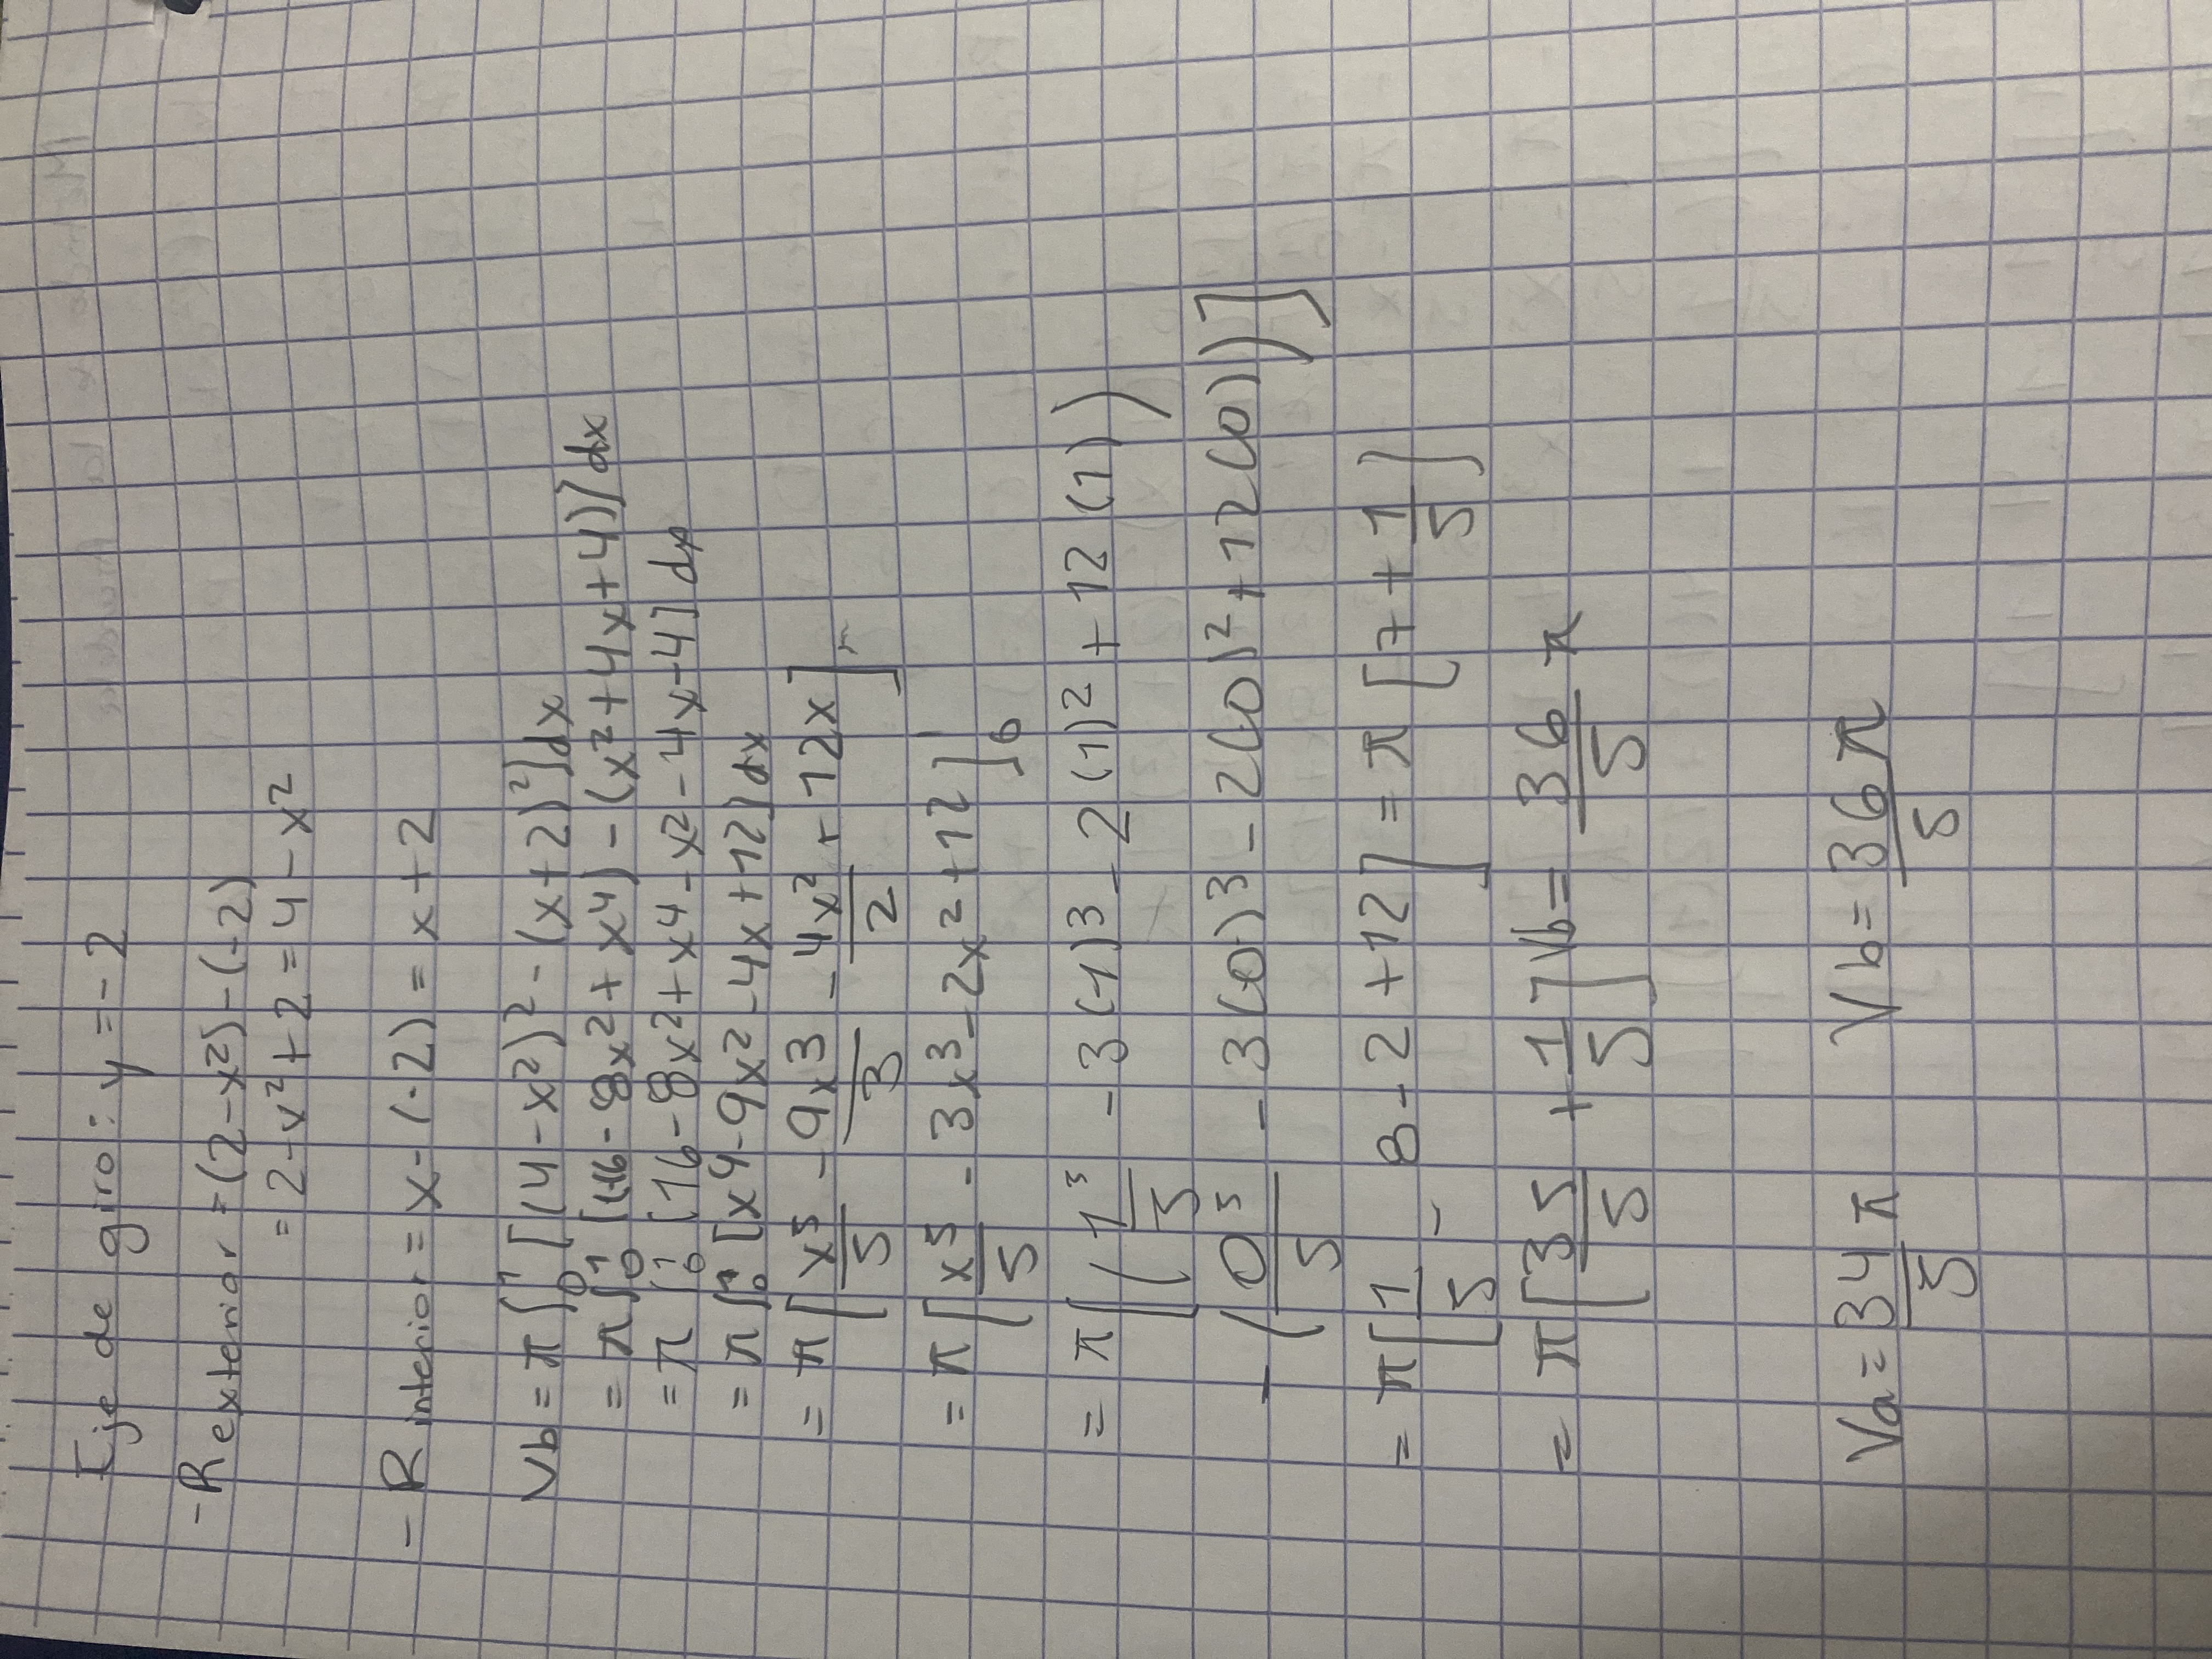 Eje de giro: y = -2
- R exterior = (2-x²)-(-2)
= 2-x²+2 = 4-x²
- R interior = x-(-2) = x+2
Vb = π∫₀¹ [(4-x²)² - (x+2)²]dx
= π∫₀¹ [(16-8x²+x⁴)-(x²+4x+4)]dx
= π∫₀¹ [16-8x²+x⁴-x²-4x-4]dx
= π∫₀¹ [x⁴-9x²-4x+12]dx
= π[x⁵/5 - 9x³/3 - 4x²/2 + 12x]
= π[x⁵/5 - 3x³-2x²+12]₀¹
= π[(1⁵/5 - 3(1)³-2(1)²+12(1))
- (0⁵/5 - 3(0)³-2(0)²+12(0))]
= π[1/5 - 3-2+12] = π[7+1/5]
= π[35/5 + 1/5] Vb = 36/5 π
Va = 34/5 π Vb = 36π/5